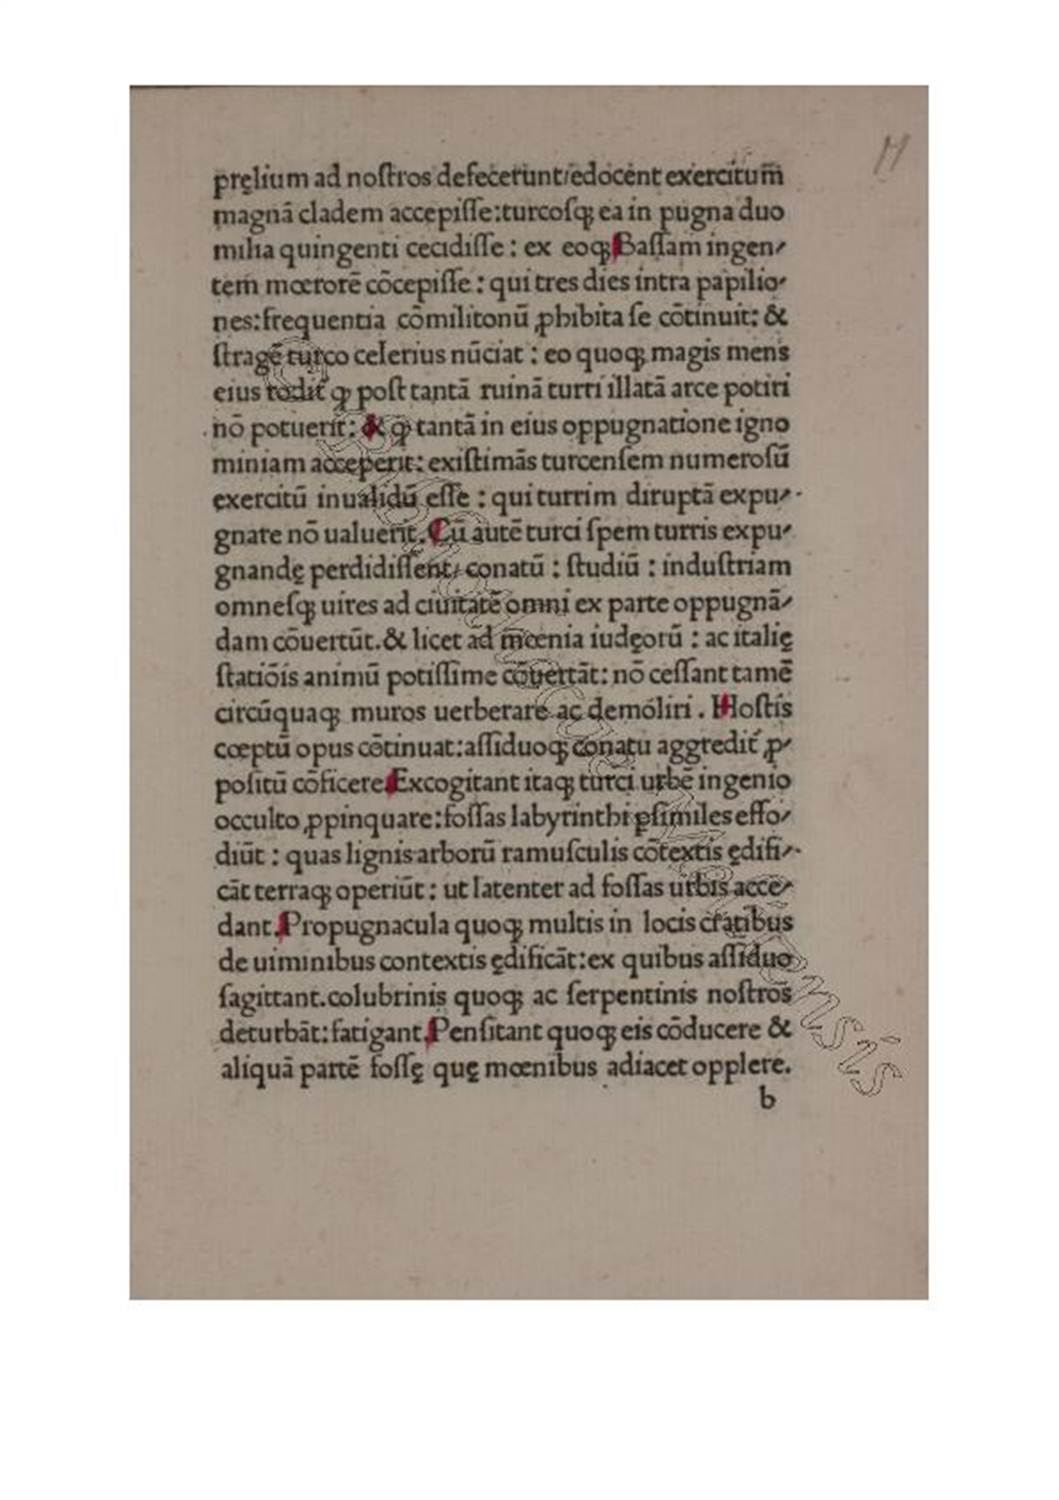 11
pręlium ad noſtros defecerunt/edocent exercitum̄
magnā cladem accepiſſe:turcoſqꝫ ea in pugna duo
milia quingenti cecidiſſe : ex eoqꝫ Baſſam ingen⸗
tem mœrorē cōcepiſſe : qui tres dies intra papilio⸗
nes:frequentia cōmilitonū ꝓhibita ſe cōtinuit: &
ſtragē turco celerius nūciat : eo quoqꝫ magis mens
eius rodit᷑ ꝙ poſt tantā ruinā turri illatā arce potiri
nō potuerit: & ꝙ tantā in eius oppugnatione igno
miniam acceperit: exiſtimās turcenſem numeroſū
exercitū inualidū eſſe : qui turrim diruptā expu⸗
gnare nō ualuerit. Cū autē turci ſpem turris expu⸗
gnandę perdidiſſent/ conatū : ſtudiū : induſtriam
omneſqꝫ uires ad ciuitatē omni ex parte oppugnā⸗
dam cōuertūt. & licet ad mœnia iudęorū : ac italię
ſtatiōis animū potiſſime cōuertāt: nō ceſſant tamē
circūquaqꝫ muros uerberare ac demoliri . Hoſtis
cœptū opus cōtinuat:aſſiduoqꝫ conatu aggredit᷑ ꝓ⸗
poſitū cōficere. Excogitant itaqꝫ turci urbē ingenio
occulto ꝓpinquare:foſſas labyrinthi ꝑſimiles effo⸗
diūt : quas lignis arborū ramuſculis cōtextis ędifi⸗
cāt terraqꝫ operiūt : ut latenter ad foſſas urbis acce⸗
dant. Propugnacula quoqꝫ multis in locis cratibus
de uiminibus contextis ędificāt:ex quibus aſſiduo
ſagittant.colubrinis quoqꝫ ac ſerpentinis noſtros
deturbāt: fatigant. Penſitant quoqꝫ eis cōducere &
aliquā partē foſſę quę mœnibus adiacet opplere.
b